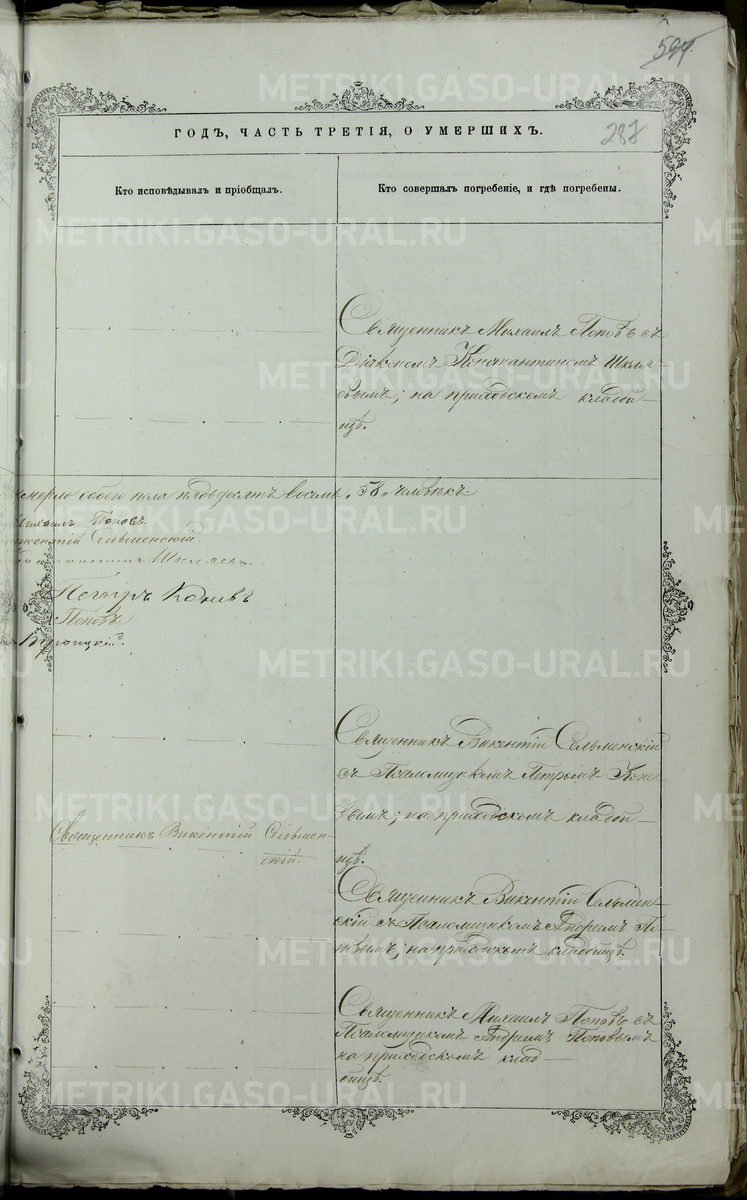 594.
287
ГОДЪ, ЧАСТЬ ТРЕТІЯ, О УМЕРШИХЪ.
Кто исповѣдывалъ и пріобщалъ.
Кто совершалъ погребеніе, и гдѣ погребены.
Священникъ Михаилъ Поповъ съ
Діакономъ Константиномъ Шкля-
евымъ; на приходскомъ кладби-
щѣ.
умерло обоего пола пядьдесятъ восемь, 58, человѣкъ.
Михаилъ Поповъ
Викентій Сельменскій
Константинъ Шкляевъ.
Петръ Коневъ
Поповъ
Троицкій.
Священникъ Викентій Сельменскій
съ Псаломщикомъ Петромъ Коне-
вымъ; на приходскомъ кладби-
щѣ.
Священникъ Викентій Сельмен-
скій.
Священникъ Викентій Сельмен-
скій съ Псаломщикомъ Андреемъ По-
повымъ; на приходскомъ кладбищѣ.
Священникъ Михаилъ Поповъ съ
Псаломщикомъ Андреемъ Поповымъ
на приходскомъ клад-
бищѣ.
METRIKI.GASO-URAL.RU